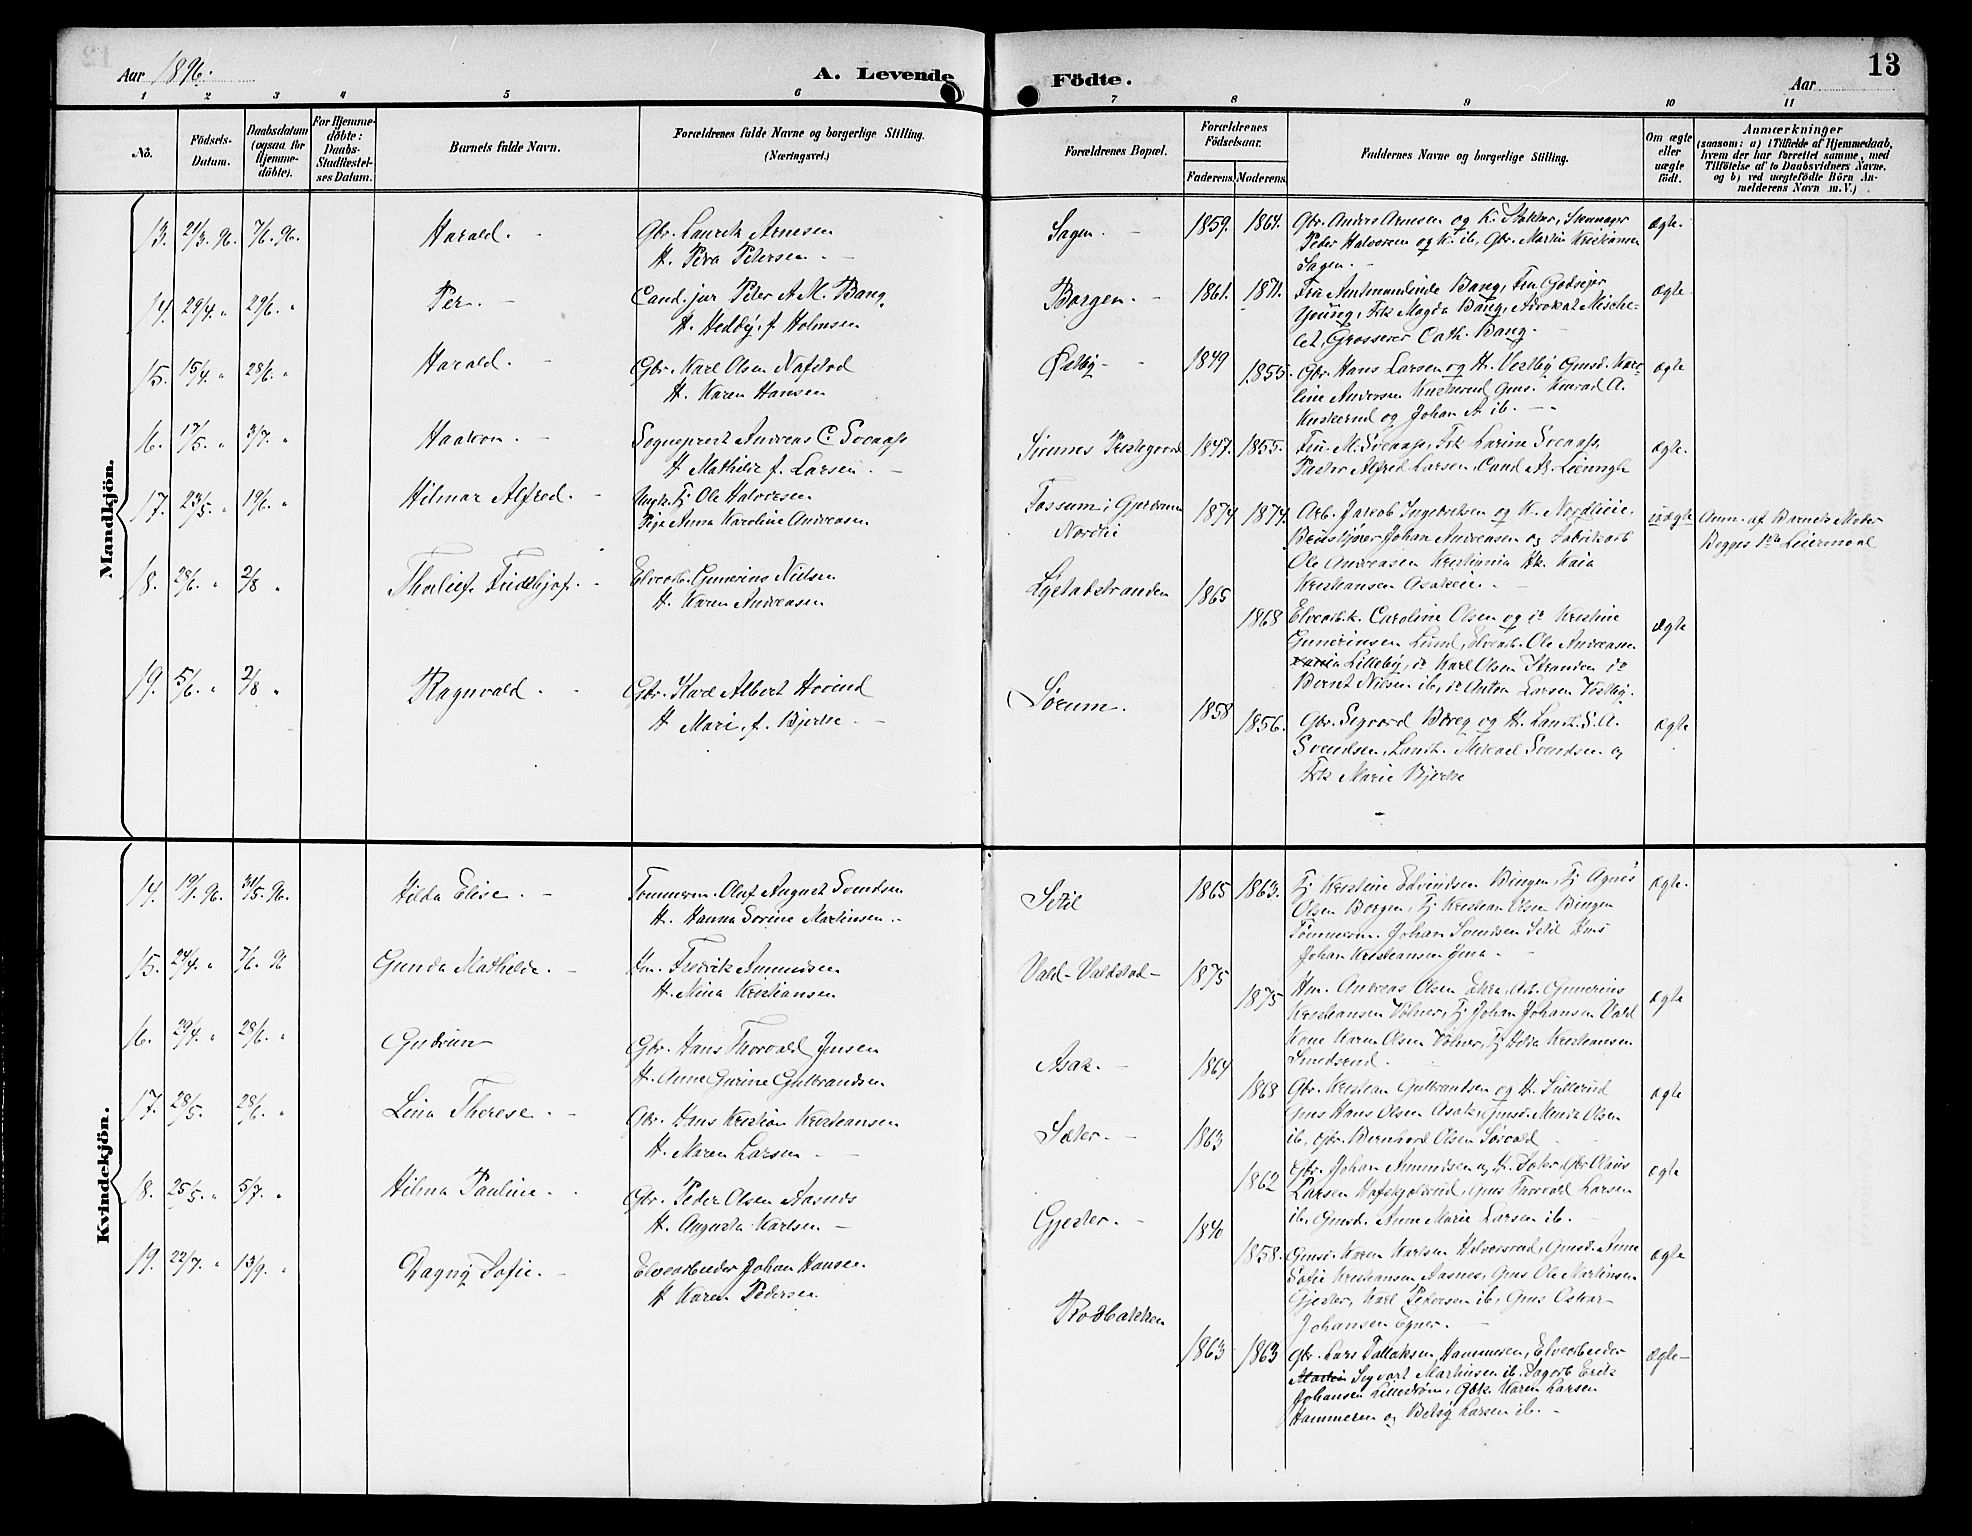 Aar 1896.
A. Levende Födte.
Aar
13
1 2 3 4 5 6 7 8 9 10 11
No.
Födsels-Datum.
Daabsdatum (ogsaa for Hjemmedöbte).
For Hjemmedöbte: Daabs-Stadfæstelses Datum.
Barnets fulde Navn.
Forældrenes fulde Navne og borgerlige Stilling. (Næringsvei.)
Forældrenes Bopæl.
Forældrenes Födselsaar.
Faderens. Moderens.
Faddernes Navne og borgerlige Stilling.
Om ægte eller uægte födt.
Anmærkninger
(saasom: a) i Tilfælde af Hjemmedaab, hvem der har forrettet samme, med Tilföielse af to Daabsvidners Navne, og b) ved uægtefödte Börn Anmelderens Navn m. V.)
Mandkjön.
13. 21/3 96. 7/6. 96. Harald. Gbr. Lauritz Arnesen
H. Petra Petersen
Sagen. 1859. 1864. Gbr. Anders Arnesen og K. Stokker,
Peder Halvorsen og K. ib, Gbr. Martin Kristiansen
Sagen.
ægte.
14. 29/4. " 29/6. " Per. Cand. jur Peter A. M. Bang
H. Hedvig, f. Holmsen
Borgen. 1861. 1871. Fru Amtmandinde Bang, Fru Godseier
Young, Frk Magda Bang, Advokat Miche-
let, Grosserer Cath. Bang.
ægte
15. 15/4. " 28/6. " Harald. Gbr. Karl Olsen Nafstad
H. Karen Hansen
Østby 1849 1855. Gbr. Hans Larsen og H. Vestby Gmsd. Kare-
line Andersen Kuskerud Gms. Konrad A.
Kuskerud og Johan A ib.
ægte
16. 17/5. " 3/7. " Haakon. Sogneprest Andreas C. Svenaas
H Mathilde f. Larsen.
Sørums Prestegaard 1847. 1855. Fru M. Svenaas, Frk Larine Svenaas,
Pastor Alfred Larsen, Cand
ægte.
17. 23/5. " 19/6. " Hilmar Alfred. Ungk. Tj Ole Halvorsen
Pige Anna Karoline Andreasen
Fossum i Gjerdrum
Nordlie
1874 1874. Arb. Jacob Ingebretsen og K. Nordlieie.
Johan Andreasen og Fabrikarb
Ole Andreasen Kristiania Frk. Kaia
Kristiansen Asakeie.
uægte Anm. af Barnets Moder
Begges 1ste Leiermaal
18. 28/6. " 2/8 " Thorleif Fridthjof. Elvearb. Gunerius Nielsen
H. Karen Andreasen
Lystadstranden 1865 1868 Elvearb. k. Caroline Olsen og do Kristine
Gunerinsen Lund, Elvearb. Ole Andreasen
Lilleby, do Karl Olsen Stranden do
Bernt Nilsen ib, do Anton Larsen Vestby.
ægte
19. 5/6. " 2/8 " Ragnvald. Gbr. Karl Albert Hovind
H Mari, f. Bjerke
Sørum. 1858 1856. Gbr. Sigvard Borg og H. Landh. S. A.
Svendsen, Landh. Mikael Svendsen og
Frk Marie Bjerke
ægte
Kvindekjön.
14. 19/1. 96. 31/5. 96. Hilda Elise. Tømmerm. Olaf August Svendsen
H. Hanna Sorine Martinsen
Setil 1865 1863. Tj Kristine Edvindsen Bingen, Tj Agnes
Olsen Borgen, Tj Kristian Olsen Bingen
Tømmerm. Johan Svendsen Setil Hms
Johan Kristiansen
ægte.
15. 24/4. " 7/6. 96 Gunda Mathilde. Hm. Fredrik Amundsen
H. Mina Kristiansen
Vald-Valdstad 1875 1875 Hm. Andreas Olsen Arb. Gunerius
Kristiansen Vølner, Tj Johan Johansen Vald
Kone Karen Olsen Vølner, Tj Hilda Kristiansen
Smedsrud.
ægte
16. 29/4. " 28/6. " Gudrun Gbr. Hans Thorvald Jensen
H. Anne Gurine Gulbrandsen
Asak. 1864 1868 Gbr. Kristian Gulbrandsen og H. Sullerud
Gms Hans Olsen Asak, Gmsd. Olsen
ib, Gbr. Bernhard Olsen Sørvald
ægte
17. 28/5. 28/6. " Lina Therese. Gbr. Hans Kristian Kristiansen
H. Maren Larsen
Sæter. 1863 1862 Gbr. Johan Amundsen og H. Gbr Olaus
Larsen Gms Thorvald Larsen
ib, Gmsd. Anne Marie Larsen ib.
ægte
18. 25/5. " 5/7. " Hilma Pauline. Gbr. Peder Olsen Aasnes
H. Augusta Karlsen
Gjester. 1840 1858. Gmsd. Karen Karlsen Halvorsrud, Gmsd. Anne
Sofie Kristiansen Aasnes, Gms Ole Martinsen
Gjester, Karl Pedersen ib, Gms Oskar
Johansen Egner.
ægte
19. 22/7. " 13/9. " Dagny Sofie. Elvearbeider Johan Hansen
H Karen Pedersen
Rodbakken 1863 1863 Gbr. Lars Tollaksen Hammeren, Elvearbeider
Sigvart Martinsen ib. Sagarb Erik
Johansen Gbk. Karen Larsen
Hammeren og Betsy Larsen ib.
ægte